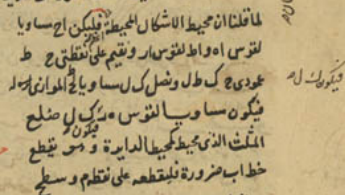 لما قلنا ان محيط الاشكال المحيطة فليكن اح مساويا
لقوس اه واط لقوس ار ونقيم على نقطتي ح ط
عمودي ح ك ط ل ونصل ك ل مساويا
فيكون مساويا لقوس ه ر ك ل ضلع
المثلث الذي محيط كمحيط الدايرة و يقطع
خط اب ضرورة فليقطعه على نقطة م وسطح
فيكون